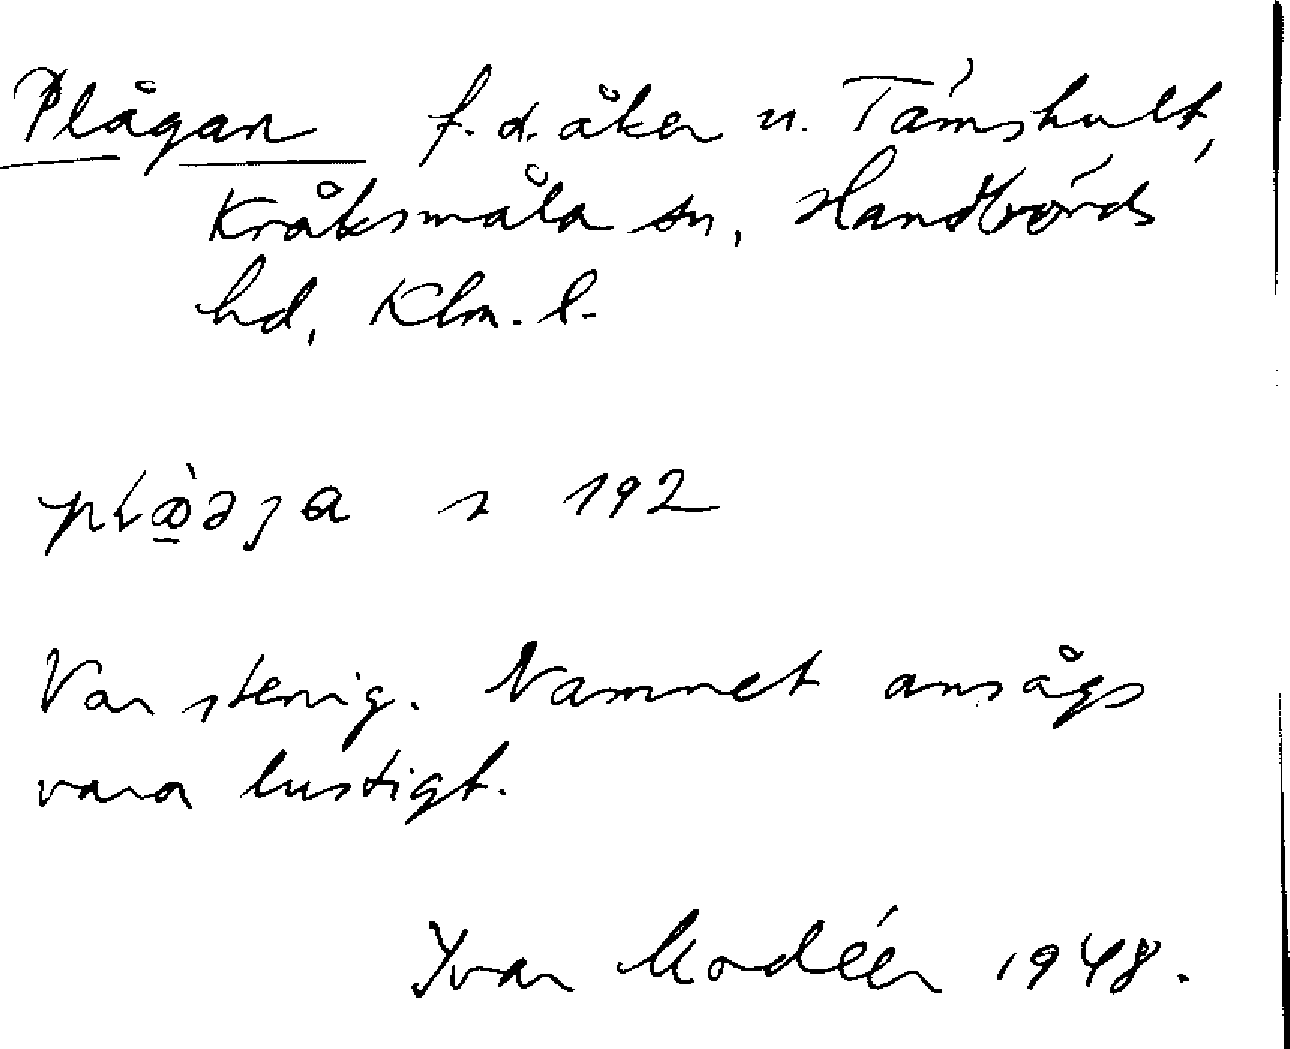 Plågan f.d. åker u. Tämshult,
Kråksmåla sn, Handbörds
hd, Klm. l.
192
Var stenig. Namnet ansågs
vara lustigt.
Yvar Modéer 1948.